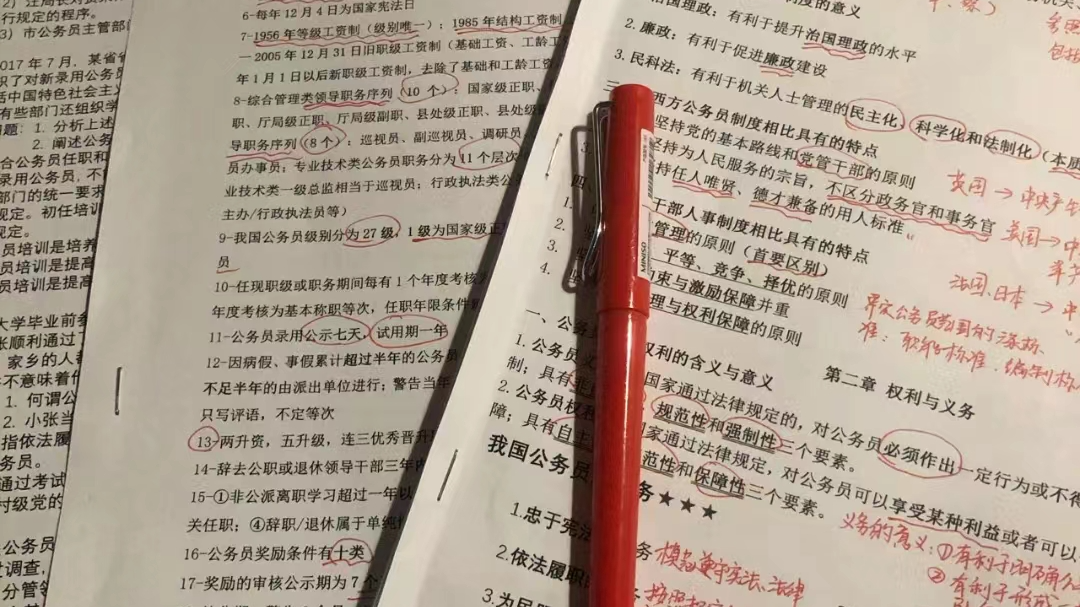 行规定的程序。
3）市公务员主管部
2017年7月，某省
织了对新录用公务员
活中国特色社会主义
有些部门还组织学
题：1. 分析上述
2. 阐述公务
合公务员任职和
录用公务员，不
部门的统一要求
规定。初任培训
规定。
员培训是培养
员培训是提高
员培训是提高
大学毕业前参
张顺利通过了
家乡的人都
不意味着什
1. 何谓公
2. 小张当
指依法履
务员。
通过考试
村级党的
公务员
过调查，
分管领
6-每年12月4日为国家宪法日
7-1956年等级工资制（级别唯一）；1985年结构工资制
—2005年12月31日旧职级工资制（基础工资、工龄工
年1月1日以后新职级工资制，去除了基础和工龄工资
8-综合管理类领导职务序列（10个）：国家级正职、
职、厅局级正职、厅局级副职、县处级正职、县处级
导职务序列（8个）：巡视员、副巡视员、调研员、
员办事员；专业技术类公务员职务分为11个层次
业技术类一级总监相当于巡视员；行政执法类公
主办/行政执法员等）
9-我国公务员级别分为27级，1级为国家级正
员
10-任现职级或职务期间每有1个年度考核
年度考核为基本称职等次，任职年限条件
11-公务员录用公示七天，试用期一年
12-因病假、事假累计超过半年的公务员
不足半年的由派出单位进行；警告当年
只写评语，不定等次
13-两升资，五升级，连三优秀晋升
14-辞去公职或退休领导干部三年内
15-①非公派离职学习超过一年以
关任职；④辞职/退休属于单纯
16-公务员奖励条件有十类
17-奖励的审核公示期为7个
治国理政：有利于提升治国理政的水平
2. 廉政：有利于促进廉政建设
3. 民科法：有利于机关人士管理的民主化，科学化和法制化（本质
西方公务员制度相比具有的特点
坚持党的基本路线和党管干部的原则
坚持为人民服务的宗旨，不区分政务官和事务官
持任人唯贤、德才兼备的用人标准。
干部人事制度相比具有的特点
管理的原则（首要区别）
、平等、竞争、择优的原则
约束与激励保障并重
理与权利保障的原则
英国→中央
美国→中
法国、日本→中
第二章 权利与义务
一、公务员 权利的含义与意义
1. 公务员义 国家通过法律规定的，对公务员必须作出一定行为或不得
制；具有 、规范性和强制性三个要素。
2. 公务员权利 家通过法律规定，对公务员可以享受某种利益或者可以
障；具有自主 范性和保障性三个要素。
我国公务员 务★★★
1.忠于宪法
2.依法履职
3.为民服
模范遵守宪法、法律
义务的意义：①有利于明确
②有利于形成
MINISO